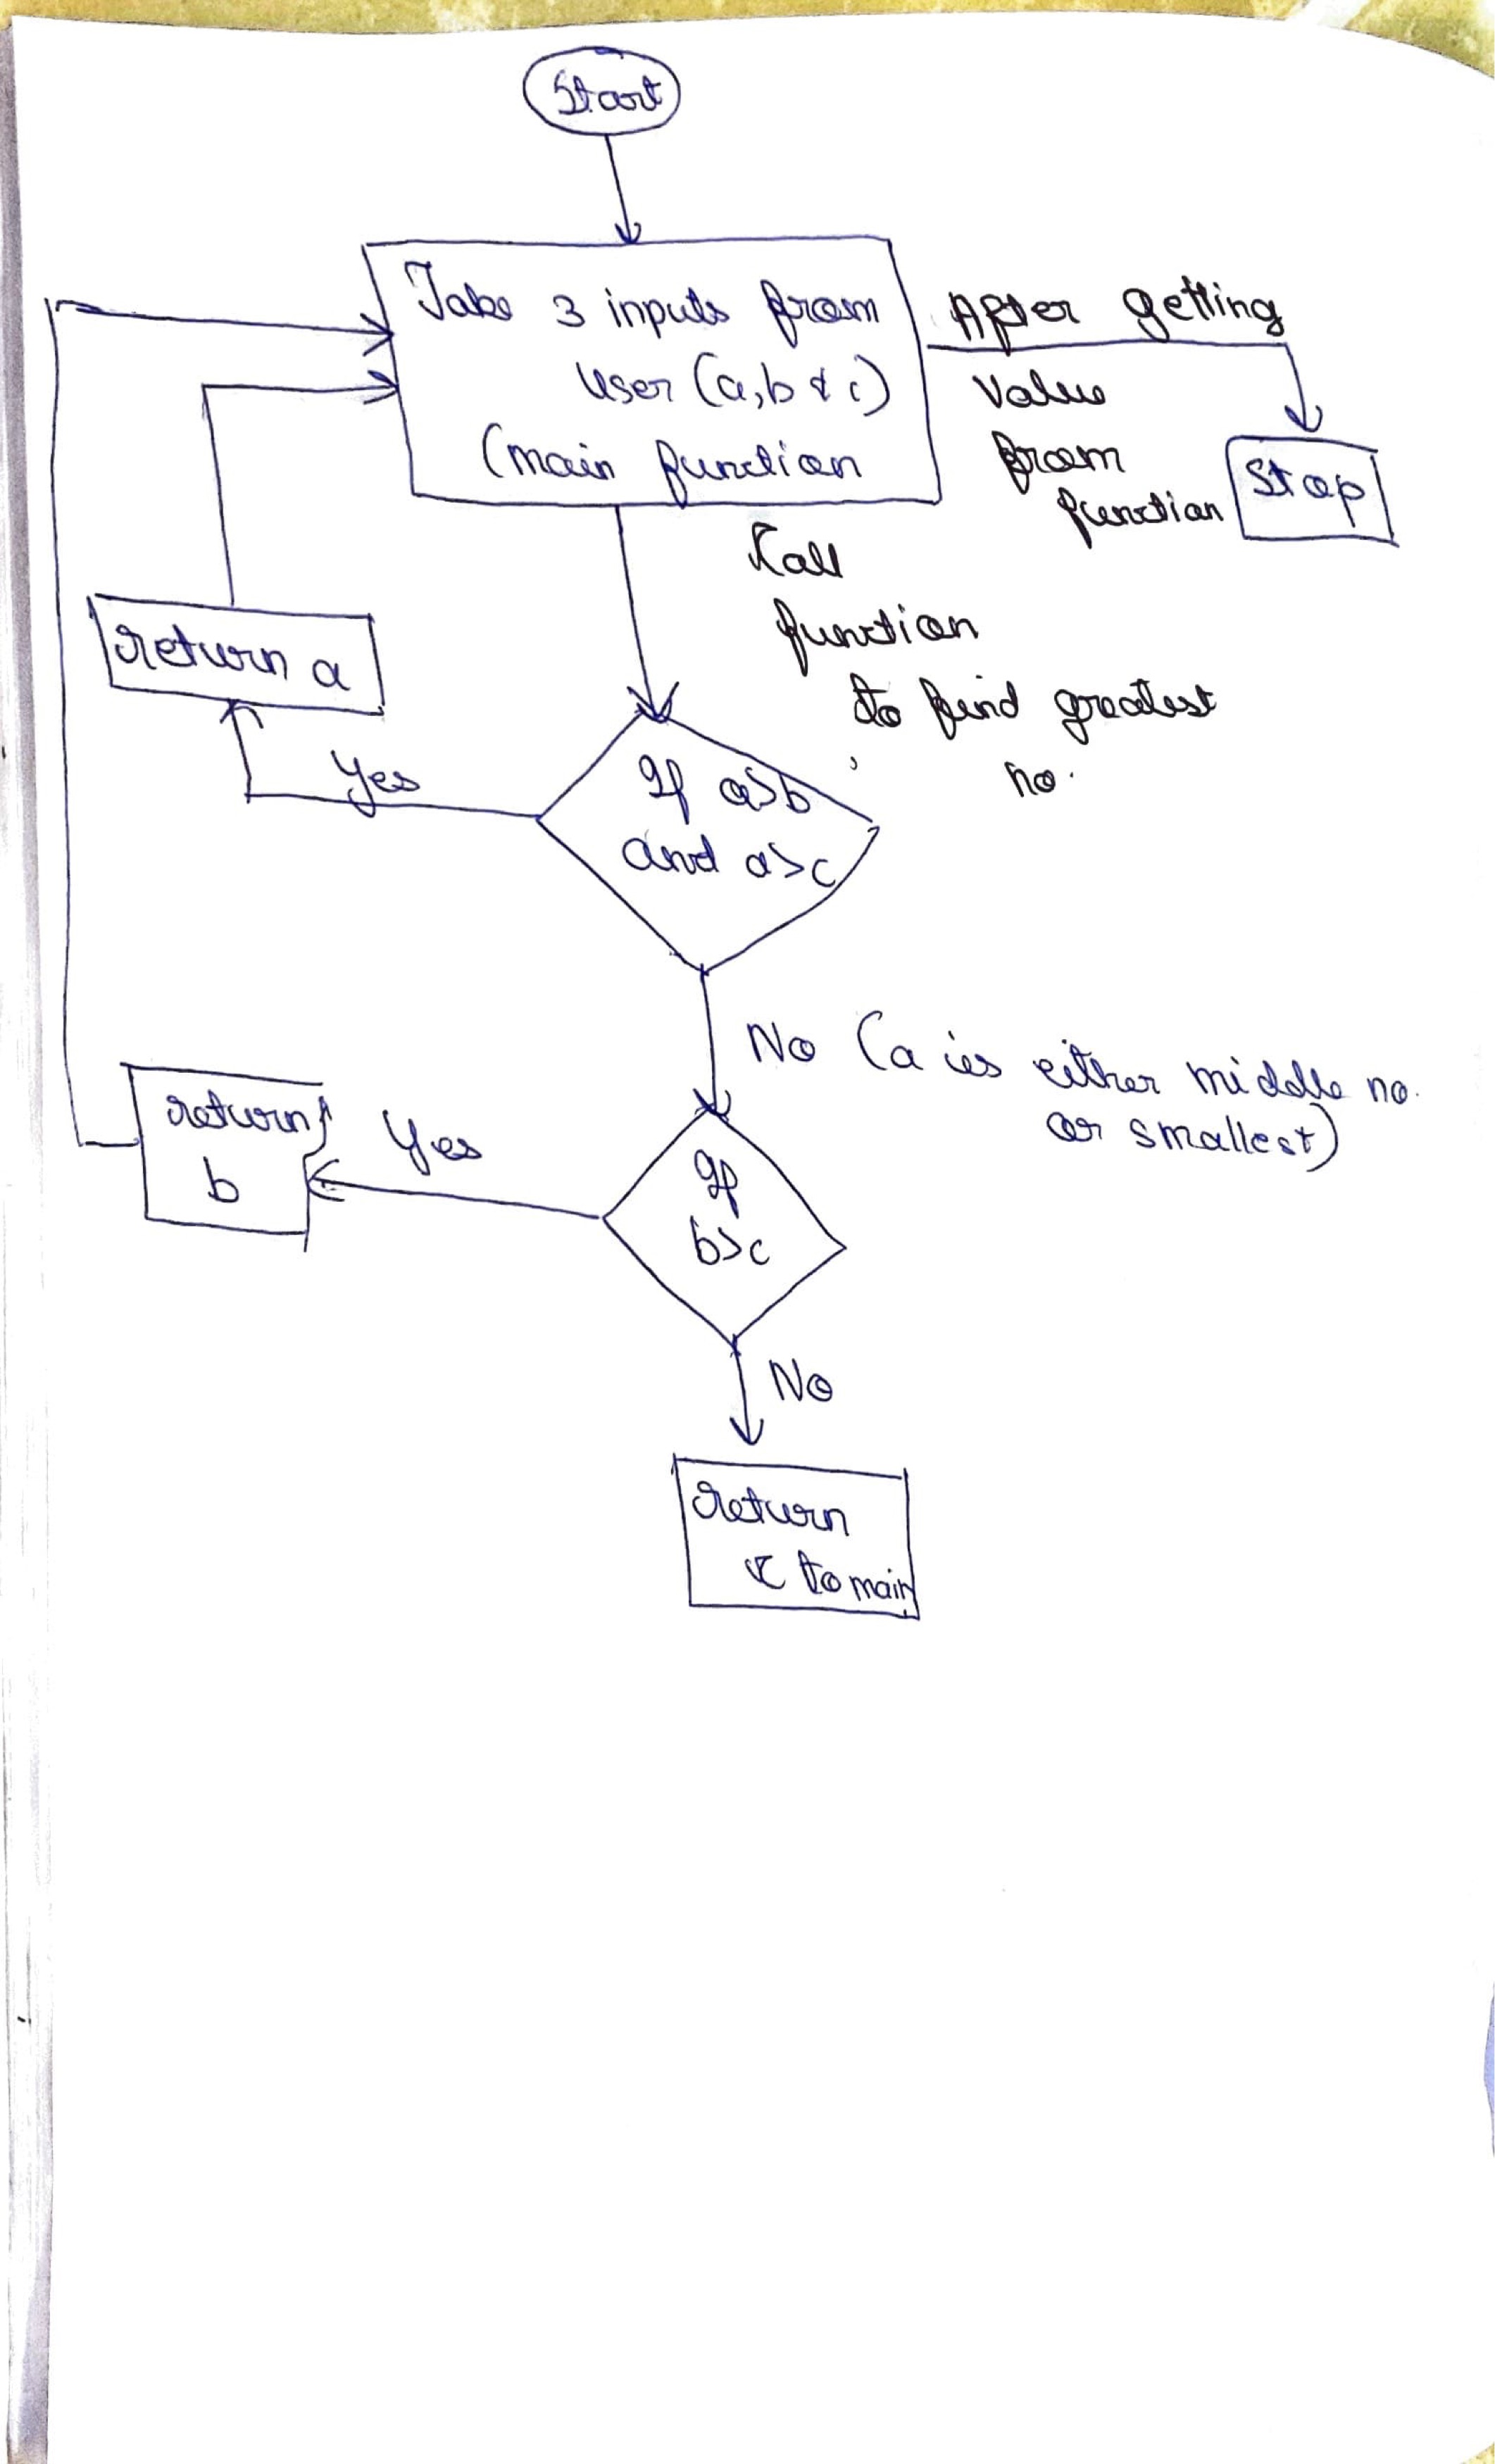 Start
Take 3 inputs from
User (a, b & c)
(main function
After getting
Value
from
function
Stop
Call
function
to find greatest
no.
return a
Yes
If a>b
and a>c
No (a is either middle no.
or smallest)
return
b
Yes
If
b>c
No
return
c to main